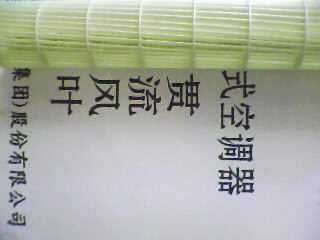 式空调器
贯流风叶
集团)股份有限公司